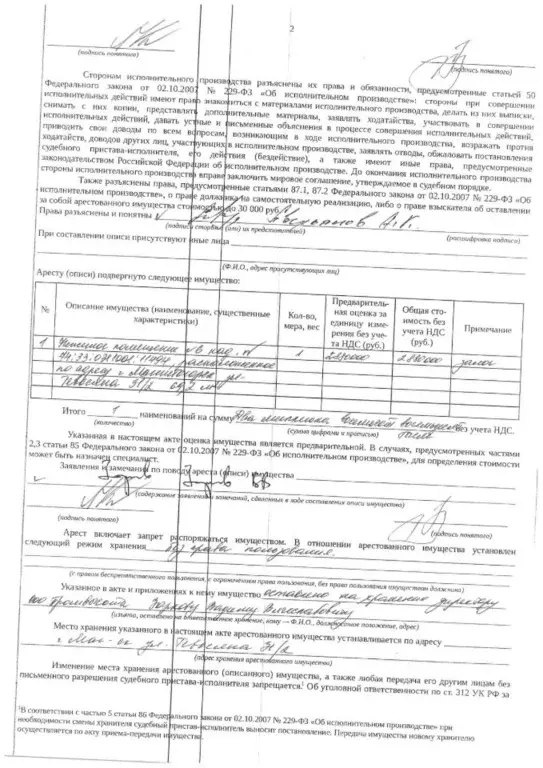 2
(подпись понятого)
(подпись понятого)
Сторонам исполнительного производства разъяснены их права и обязанности, предусмотренные статьей 50
Федерального закона от 02.10.2007 № 229-ФЗ «Об исполнительном производстве»: стороны при совершении
исполнительных действий имеют право знакомиться с материалами исполнительного производства, делать из них выписки,
снимать с них копии, представлять дополнительные материалы, заявлять ходатайства, участвовать в совершении
исполнительных действий, давать устные и письменные объяснения в процессе совершения исполнительных действий,
приводить свои доводы по всем вопросам, возникающим в ходе исполнительного производства, возражать против
ходатайств, доводов других лиц, участвующих в исполнительном производстве, заявлять отводы, обжаловать постановления
судебного пристава-исполнителя, его действия (бездействие), а также имеют иные права, предусмотренные
законодательством Российской Федерации об исполнительном производстве. До окончания исполнительного производства
стороны исполнительного производства вправе заключить мировое соглашение, утверждаемое в судебном порядке.
Также разъяснены права, предусмотренные статьями 87.1, 87.2 Федерального закона от 02.10.2007 № 229-ФЗ «Об
исполнительном производстве», о праве должника на самостоятельную реализацию, либо о праве взыскателя об оставлении
за собой арестованного имущества стоимостью до 30 000 руб.
Права разъяснены и понятны
(подписи стороны (или) их представителей) (расшифровка подписи)
При составлении описи присутствуют иные лица
(Ф.И.О., адрес присутствующих лиц)
Аресту (описи) подвергнуто следующее имущество:
№ Описание имущества (наименование, существенные характеристики) Кол-во, мера, вес Предварительная оценка за единицу измерения без учета НДС (руб.) Общая стоимость без учета НДС (руб.) Примечание
1 помещение 1 залог
по адресу г.
Итого 1 наименований на сумму Два миллиона без учета НДС.
(количество) (сумма цифрами и прописью)
Указанная в настоящем акте оценка имущества является предварительной. В случаях, предусмотренных частями
2,3 статьи 85 Федерального закона от 02.10.2007 № 229-ФЗ «Об исполнительном производстве», для определения стоимости
может быть назначен специалист.
Заявления и замечания по поводу ареста (описи) имущества
(содержание заявлений и замечаний, сделанных в ходе составления описи имущества)
(подпись понятого)
(подпись понятого)
Арест включает запрет распоряжаться имуществом. В отношении арестованного имущества установлен
следующий режим хранения без права пользования.
(с правом беспрепятственного пользования, с ограничением права пользования, без права пользования имуществом должника)
Указанное в акте и приложениях к нему имущество оставлено на хранение директору
ООО
(изъято, оставлено на ответственное хранение, кому — Ф.И.О., должностное положение, адрес)
Место хранения указанного в настоящем акте арестованного имущества устанавливается по адресу
ул.
(адрес хранения арестованного имущества)
Изменение места хранения арестованного (описанного) имущества, а также любая передача его другим лицам без
письменного разрешения судебного пристава-исполнителя запрещается.¹ Об уголовной ответственности по ст. 312 УК РФ за
¹В соответствии с частью 5 статьи 86 Федерального закона от 02.10.2007 № 229-ФЗ «Об исполнительном производстве» при
необходимости смены хранителя судебный пристав-исполнитель выносит постановление. Передача имущества новому хранителю
осуществляется по акту приема-передачи имущества.